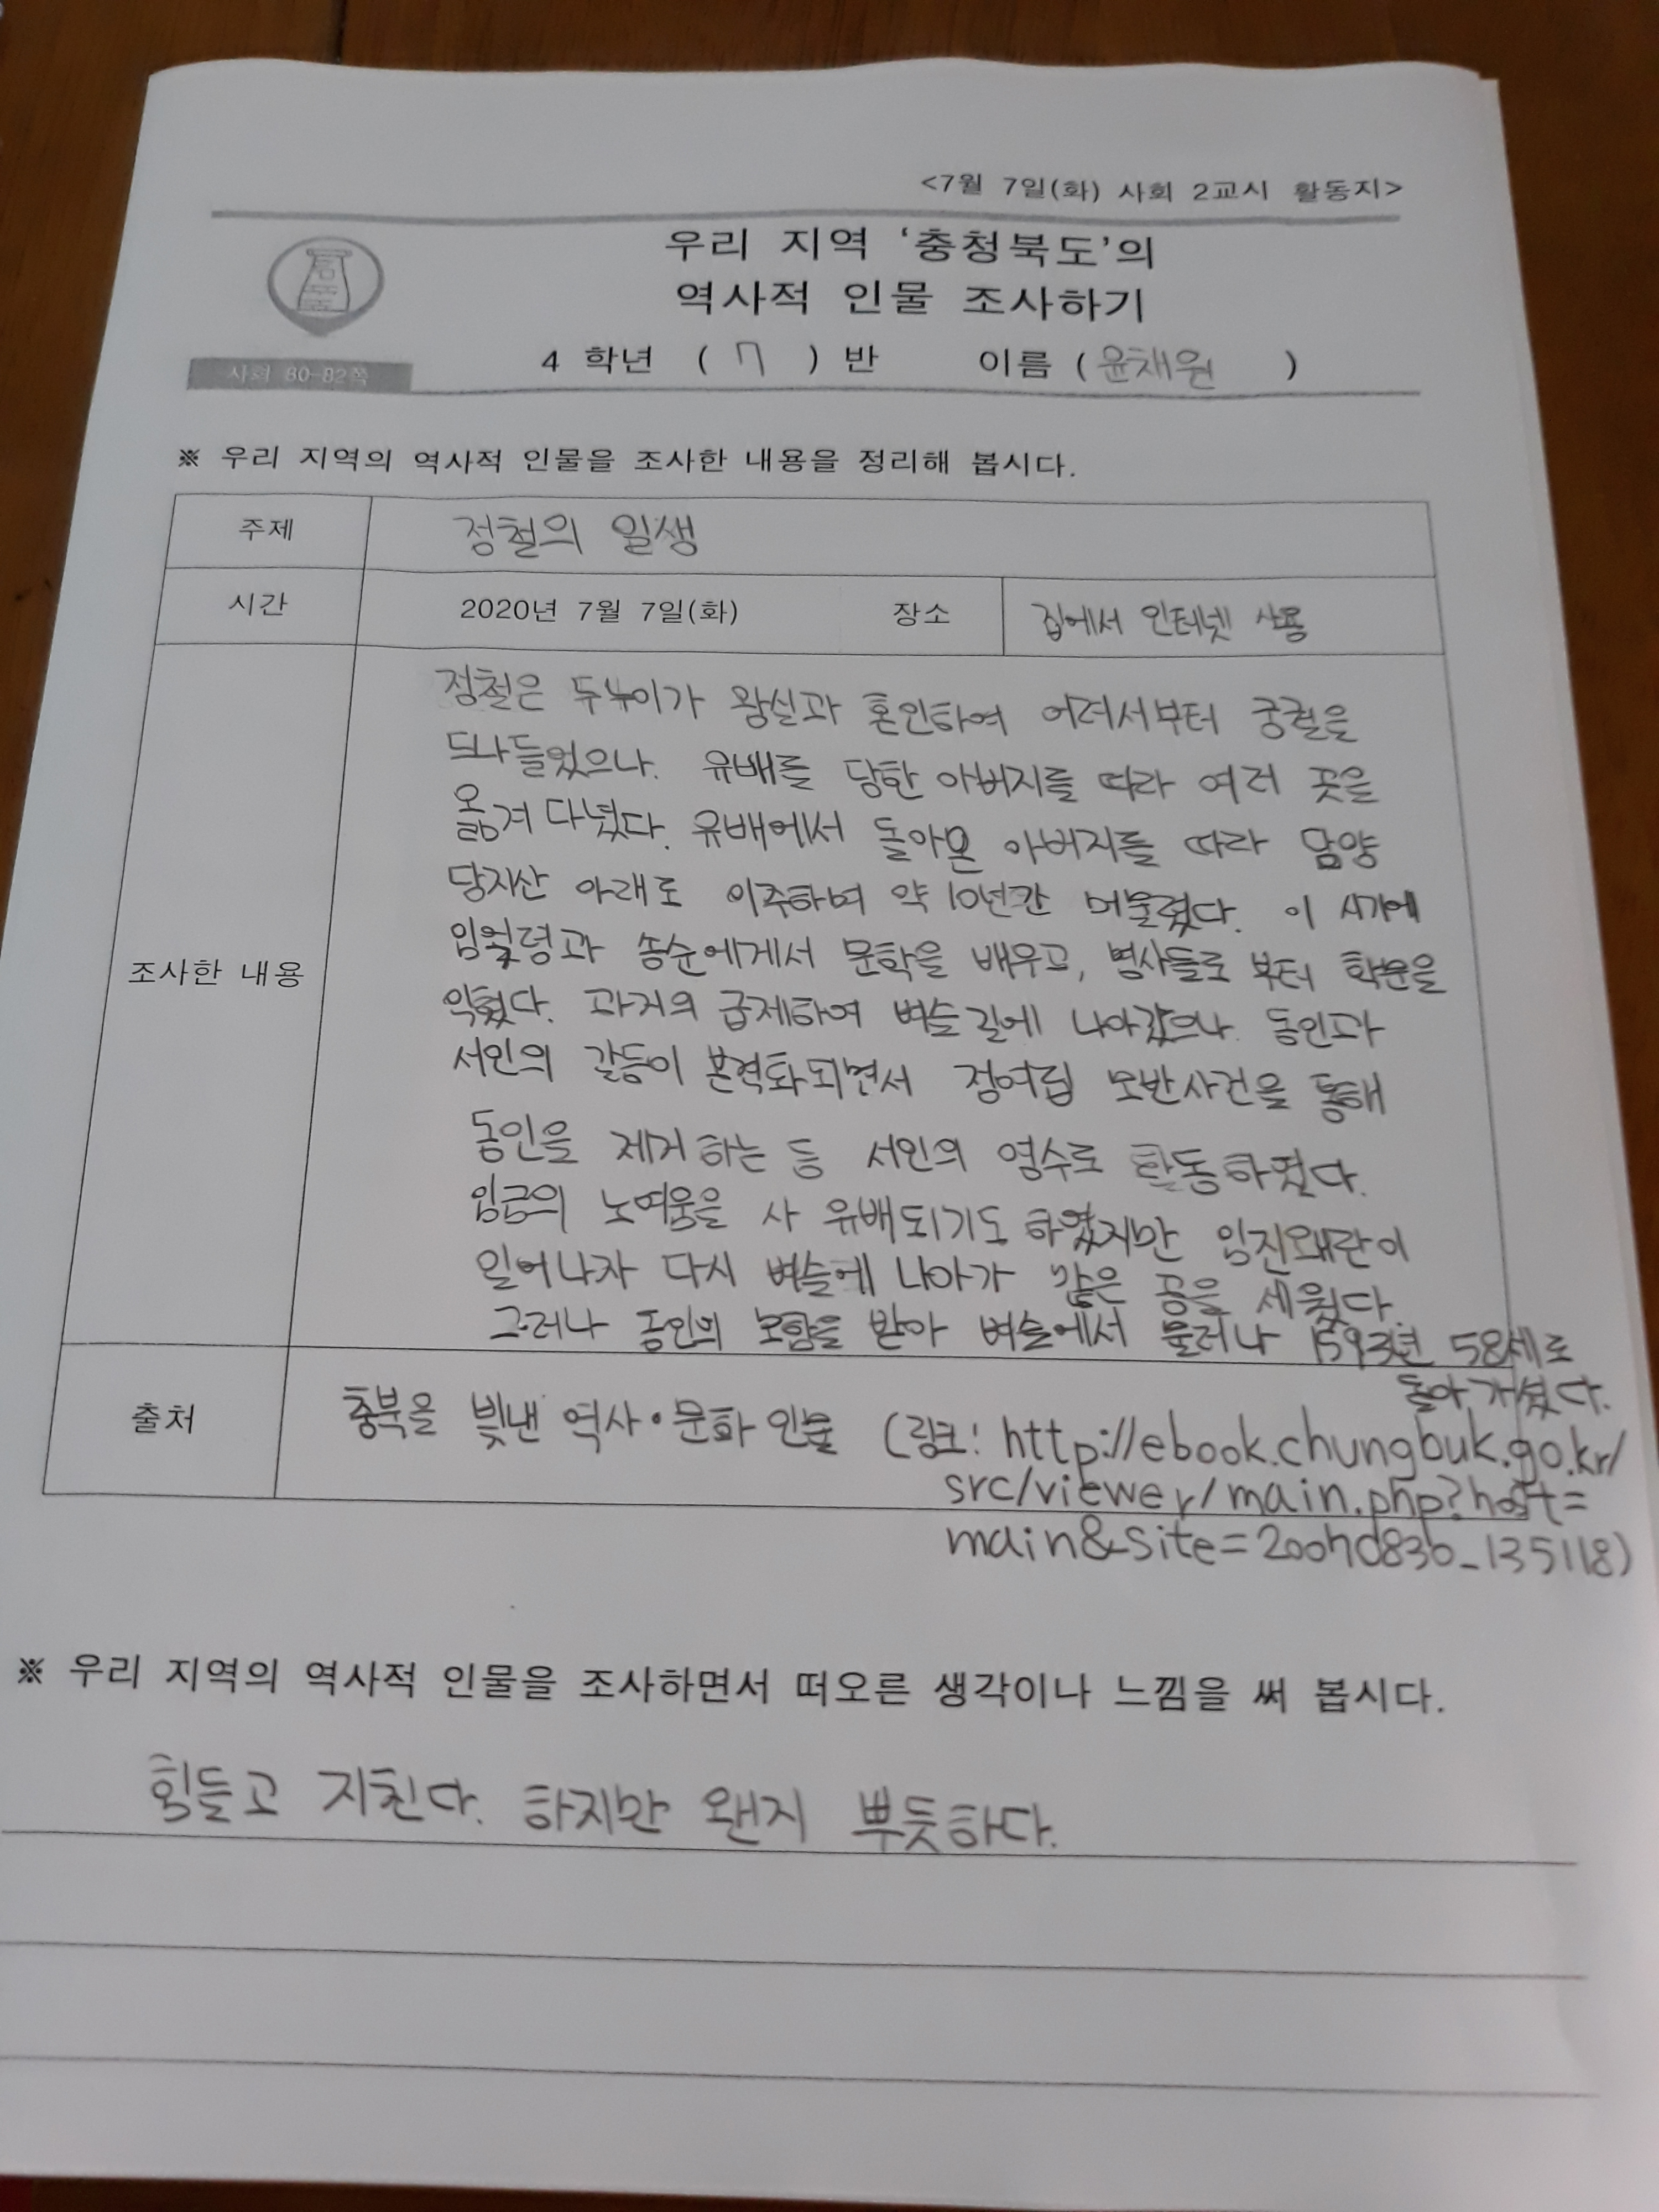 <7월 7일(화) 사회 2교시 활동지>
우리 지역 '충청북도'의
역사적 인물 조사하기
사회 80-82쪽
4 학년 ( 7 ) 반 이름 ( 윤채원 )
※ 우리 지역의 역사적 인물을 조사한 내용을 정리해 봅시다.
주제 정철의 일생
시간 2020년 7월 7일(화) 장소 집에서 인터넷 사용
조사한 내용
정철은 두누이가 왕실과 혼인하여 어려서부터 궁궐을
드나들었으나. 유배를 당한 아버지를 따라 여러 곳을
옮겨 다녔다. 유배에서 돌아온 아버지를 따라 담양
당지산 아래로 이주하며 약 10년간 머물렀다. 이 시기에
임얼령과 송순에게서 문학을 배우고, 병사들로 부터 학문을
익혔다. 과거의 급제하여 벼슬길에 나아갔으나. 동인과
서인의 갈등이 본격화되면서 정여립 모반사건을 통해
동인을 제거하는 등 서인의 영수로 활동하였다.
임금의 노여움을 사 유배되기도 하였지만 임진왜란이
일어나자 다시 벼슬에 나아가 많은 공을 세웠다.
그러나 동인의 모함을 받아 벼슬에서 물러나 1593년 58세로
돌아가셨다.
출처 충북을 빛낸 역사·문화 인물 (링크: http://ebook.chungbuk.go.kr/
src/viewer/main.php?host=
main&site=
※ 우리 지역의 역사적 인물을 조사하면서 떠오른 생각이나 느낌을 써 봅시다.
힘들고 지친다. 하지만 왠지 뿌듯하다.